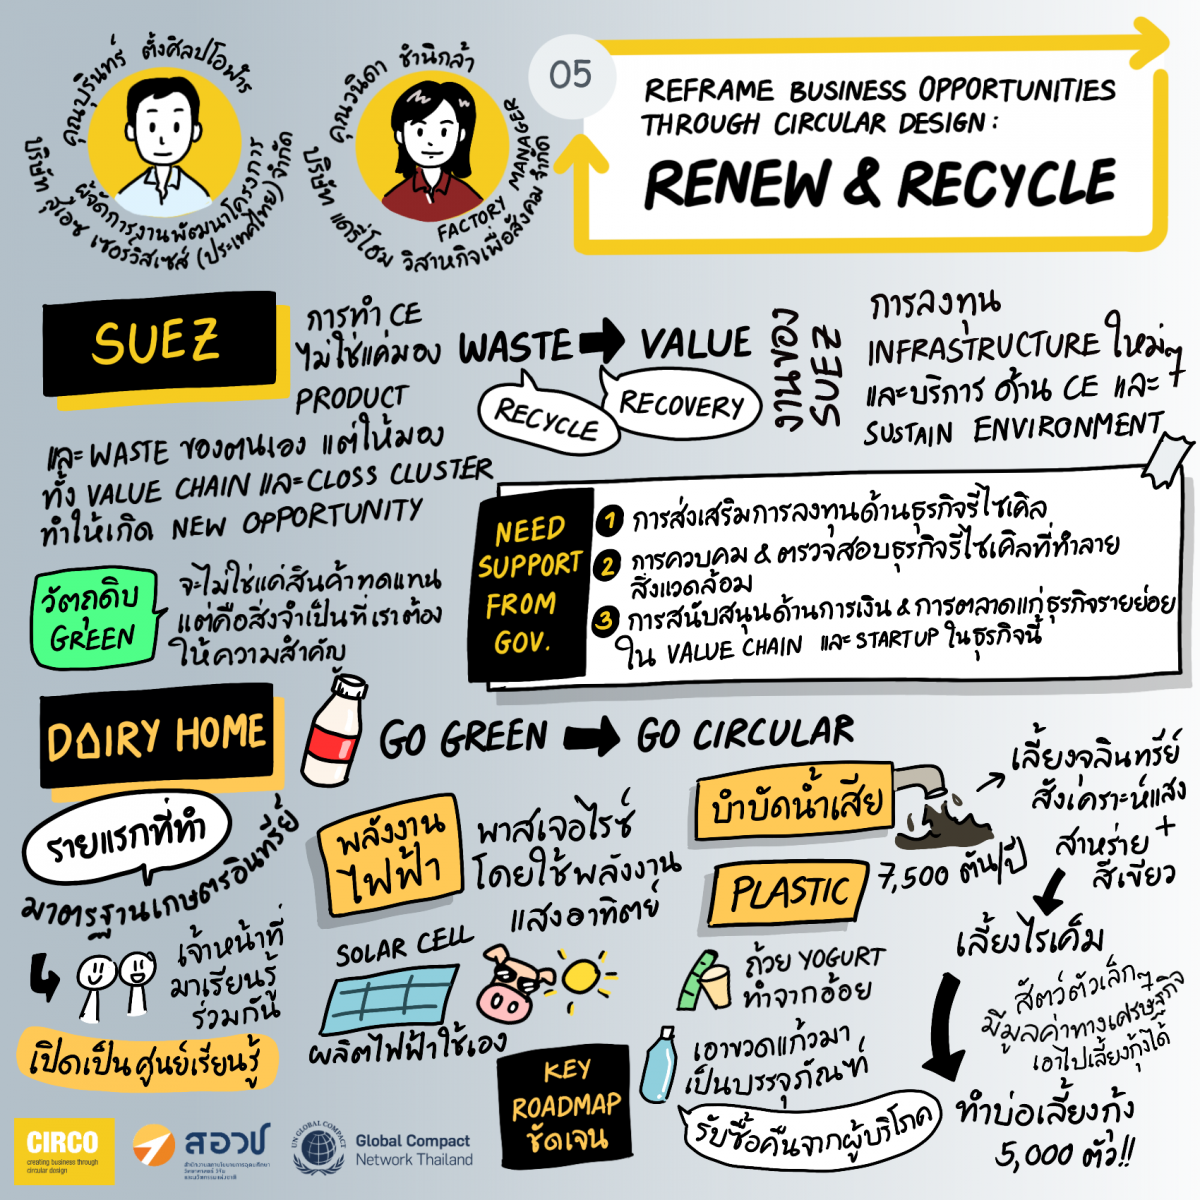 คุณบุรินทร์ ตั้งศิลปโอฬาร
ผู้จัดการงานพัฒนาโครงการ
บริษัท สุเอซ เซอร์วิสเซส (ประเทศไทย) จำกัด
คุณวนิดา ชำนิกล้า
FACTORY MANAGER
บริษัท แดรี่โฮม วิสาหกิจเพื่อสังคม จำกัด
05
REFRAME BUSINESS OPPORTUNITIES
THROUGH CIRCULAR DESIGN:
RENEW & RECYCLE
SUEZ
การทำ CE
ไม่ใช่แค่มอง
PRODUCT
และ WASTE ของตนเอง แต่ให้มอง
ทั้ง VALUE CHAIN และ CLOSS CLUSTER
ทำให้เกิด NEW OPPORTUNITY
WASTE ➡ VALUE
RECYCLE
RECOVERY
งานของ
SUEZ
การลงทุน
INFRASTRUCTURE ใหม่ๆ
และบริการ ด้าน CE และ
SUSTAIN ENVIRONMENT
วัตถุดิบ
GREEN
จะไม่ใช่แค่สินค้าทดแทน
แต่คือสิ่งจำเป็นที่เราต้อง
ให้ความสำคัญ
NEED
SUPPORT
FROM
GOV.
1 การส่งเสริมการลงทุนด้านธุรกิจรีไซเคิล
2 การควบคม & ตรวจสอบธุรกิจรีไซเคิลที่ทำลาย
สิ่งแวดล้อม
3 การสนับสนุนด้านการเงิน & การตลาดแก่ธุรกิจรายย่อย
ใน VALUE CHAIN และ STARTUP ในธุรกิจนี้
DAIRY HOME
GO GREEN ➡ GO CIRCULAR
รายแรกที่ทำ
มาตรฐานเกษตรอินทรีย์
เจ้าหน้าที่
มาเรียนรู้
ร่วมกัน
เปิดเป็นศูนย์เรียนรู้
พลังงาน
ไฟฟ้า
พาสเจอไรซ์
โดยใช้พลังงาน
แสงอาทิตย์
SOLAR CELL
ผลิตไฟฟ้าใช้เอง
KEY
ROADMAP
ชัดเจน
บำบัดน้ำเสีย
7,500 ตัน/ปี
PLASTIC
ถ้วย YOGURT
ทำจากอ้อย
เอาขวดแก้วมา
เป็นบรรจุภัณฑ์
รับซื้อคืนจากผู้บริโภค
เลี้ยงจุลินทรีย์
สังเคราะห์แสง
+
สาหร่าย
สีเขียว
เลี้ยงไรเค็ม
สัตว์ตัวเล็กๆ
มีมูลค่าทางเศรษฐกิจ
เอาไปเลี้ยงกุ้งได้
ทำบ่อเลี้ยงกุ้ง
5,000 ตัว!!
CIRCO
creating business through
circular design
สอวช
สำนักงานสภานโยบายการอุดมศึกษา
วิทยาศาสตร์ วิจัย
และนวัตกรรมแห่งชาติ
UN GLOBAL COMPACT
Global Compact
Network Thailand